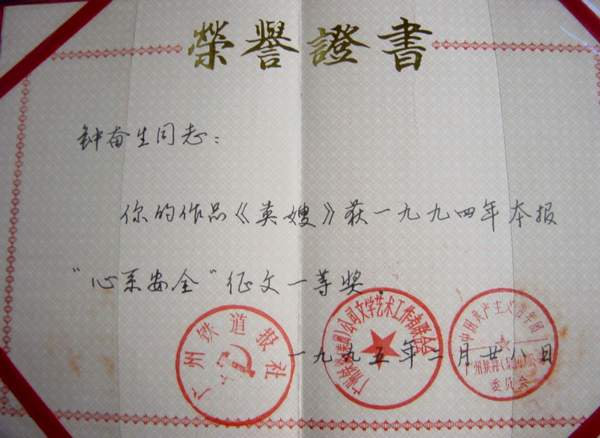 榮譽證書
钟奋生同志：
你的作品《英嫂》获一九九四年本报
“心系安全”征文一等奖.
一九九五年二月廿八日
广州铁道报社
文学艺术工作者联合会
中国共产主义青年团
委员会